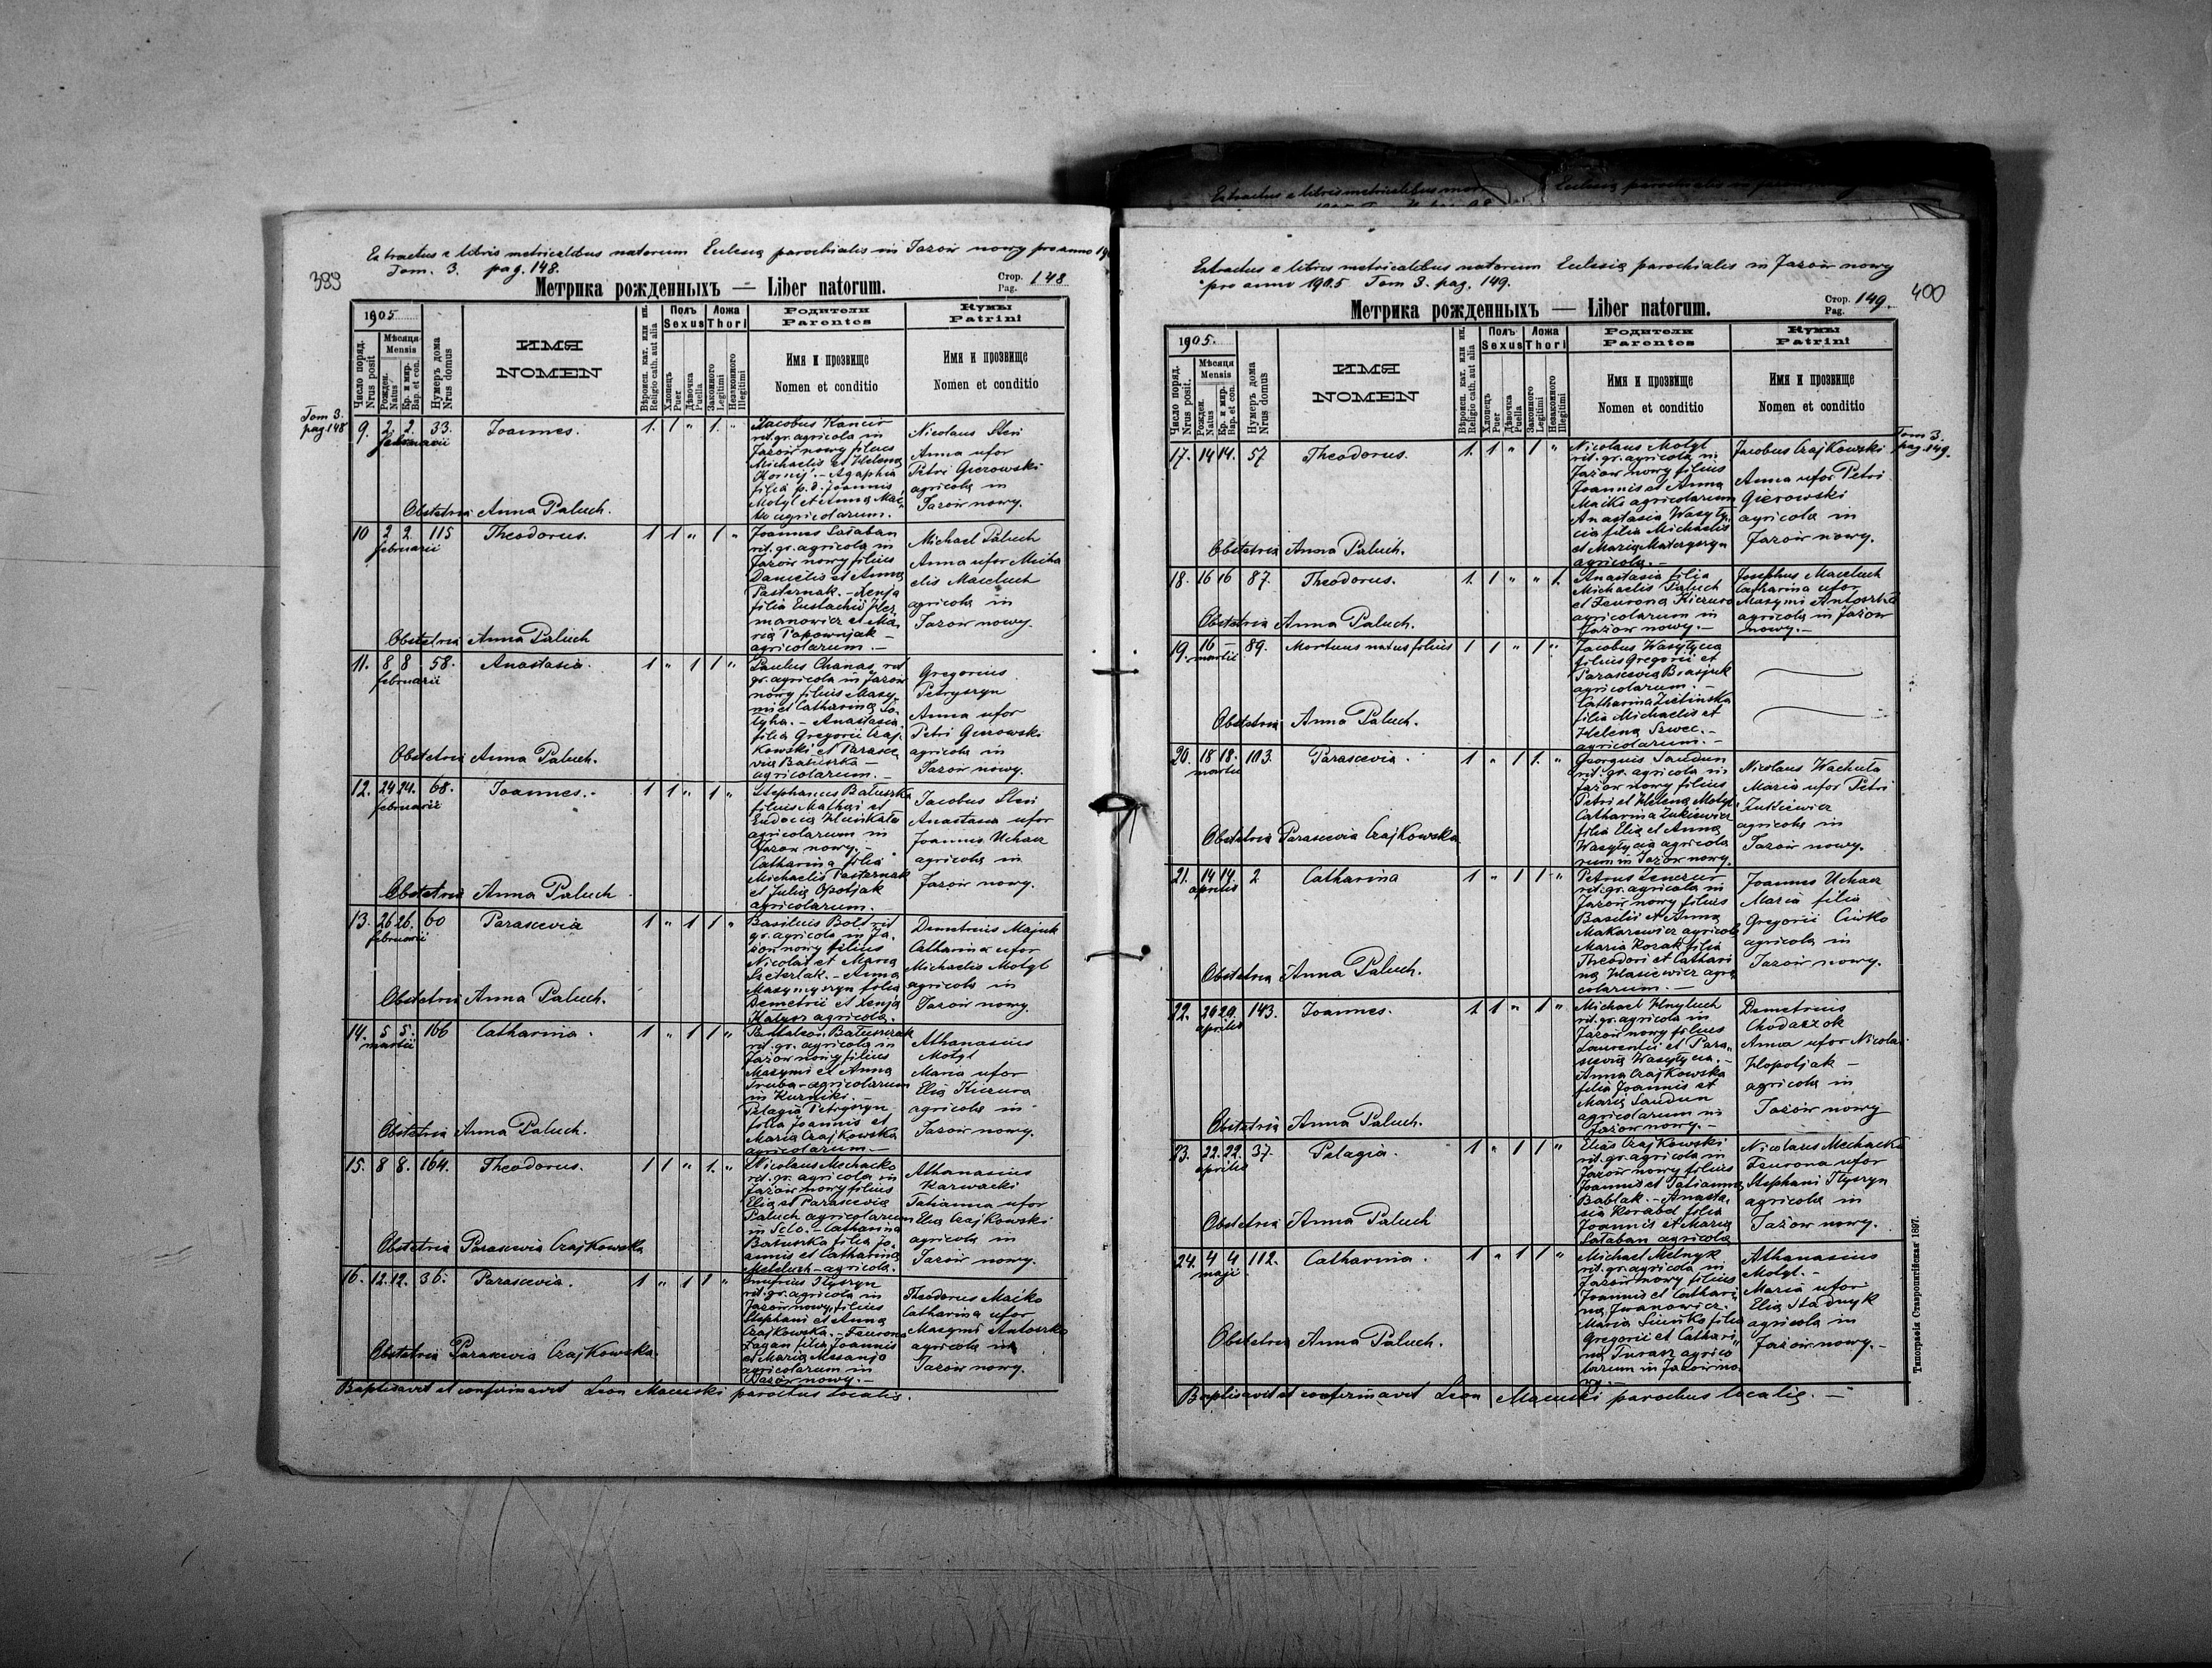 Extractus e libris metricalibus natorum Eclesiæ parochialis in Jazów nowy pro anno
Tom. 3. pag. 148.
399
Метрика рожденныхъ — Liber natorum.
Стор. Pag. 148
1905
Число поряд. Nrus posit
Мѣсяця Mensis
Рожден. Natus
Кр. и мир. Bap. et con.
Нумеръ дома Nrus domus
ИМЯ
NOMEN
Вѣроисп. кат. или ин. Religio cath. aut alia
Полъ Sexus
Хлопецъ Puer
Дѣвочка Puella
Ложа Thori
Законного Legitimi
Незаконного Illegitimi
Родители
Parentes
Имя и прозвище
Nomen et conditio
Кумы
Patrini
Имя и прозвище
Nomen et conditio
Tom 3.
pag 148
9. 2. 2. februarii 33. Joannes. 1. 1 " 1. "
Jacobus Kancir
rit. gr. agricola in
Jazów nowy filius
Michaelis et Helena
Kornij. — Agaphia
filia p. d. Joannis
Motyl et Anna
agricolarum.
Nicolaus Steri
Anna uxor
Petri Gierowski
agricola in
Jazów nowy.
Obstetrix Anna Paluch.
10 2 2 februarii 115 Theodorus. 1 1 " 1 "
Joannes Sałaban
rit. gr. agricola in
Jazów nowy filius
Danielis et Anna
Pasternak. — Xenja
filia Eustachii
manowicz et Ma
ria Papownjak —
agricolarum. —
Michael Paluch
Anna uxor Micha
elis Maceluch
agricola in
Jazów nowy.
Obstetrix Anna Paluch
11. 8 8 februarii 58. Anastasia. 1 " 1 1 "
Paulus Chanas, rit
gr. agricola in Jazów
nowy filius Maxy
mi et Catharina
Anastasia
filia Gregorii Czaj
kowski et Parasce
via Batuszka —
agricolarum. —
Gregorius
Petryszyn
Anna uxor
Petri Gierowski
agricola in
Jazów nowy.
Obstetrix Anna Paluch.
12. 24 24. februarii 68. Joannes. 1 1 " 1 "
Stephanus Batuszka
filius Mathei et
Eudocia
agricolarum in
Jazów nowy. —
Catharina filia
Michaelis Pasternak
et Julia Opotjak
agricolarum. —
Jacobus Steri
Anastasia uxor
Joannis Uchacz
agricola in
Jazów nowy.
Obstetrix Anna Paluch
13. 26 26. februarii 60 Parascevia 1 " 1 1 "
Basilius Bolt rit
gr. agricola in Ja
zów nowy filius
Nicolai et Maria
Anna
Maxymyszyn filia
Demetrii et Xenja
agricola.
Demetrius Majuk
Catharina uxor
Michaelis Motyl
agricola in
Jazów nowy.
Obstetrix Anna Paluch.
14. 5 5. martii 166 Catharina. 1 " 1 1 "
Pantaleon Batuszczak
rit. gr. agricola in
Jazów nowy filius
Maxymi et Anna
Truba — agricolarum
in Kurniki. —
Pelagia Petryszyn
filia Joannis et
Maria Czajkowska
agricolarum —
Athanasius
Motyl
Maria uxor
Eliæ Kiczura
agricola in
Jazów nowy.
Obstetrix Anna Paluch.
15. 8 8. 164. Theodorus. 1 1 " 1. "
Nicolaus Mechacko
rit. gr. agricola in
Jazów nowy filius
Eliæ et Parascevia
Paluch agricolarum
in Selo. — Catharina
Batuszka filia Jo
annis et Catharina
agricola.
Athanasius
Karwacki
Tatianna uxor
Eliæ Czajkowski
agricola in
Jazów nowy.
Obstetrix Parascevia Czajkowska
16. 12. 12. 36. Parascevia. 1 " 1 1 "
Onufrius Ilyszyn
rit. gr. agricola in
Jazów nowy, filius
Stephani et Anna
Czajkowska. — Feurona
Łagan filia Joannis
et Maria
agricolarum in
Jazów nowy. —
Theodorus Maiko
Catharina uxor
Maxymi Antoszko
agricola in
Jazów nowy.
Obstetrix Parascevia Czajkowska.
Baptisavit et confirmavit Leon parochus localis.
Extractus e libris metricalibus natorum Eclesiæ parochialis in Jazów nowy
pro anno 1905 Tom 3. pag. 149.
400
Метрика рожденныхъ — Liber natorum.
Стор. Pag. 149.
1905.
Число поряд. Nrus posit.
Мѣсяця Mensis
Рожден. Natus
Кр. и мир. Bap. et con.
Нумеръ дома Nrus domus
ИМЯ
NOMEN
Вѣроисп. кат. или ин. Religio cath. aut alia
Полъ Sexus
Хлопецъ Puer
Дѣвочка Puella
Ложа Thori
Законного Legitimi
Незаконного Illegitimi
Родители
Parentes
Имя и прозвище
Nomen et conditio
Кумы
Patrini
Имя и прозвище
Nomen et conditio
Tom 3.
pag. 149.
17. 14 14. 57 Theodorus. 1. 1 " 1 "
Nicolaus Motyl
rit. gr. agricola in
Jazów nowy filius
Joannis et Anna
Maiko agricolarum
Anastasia Wasyły
cia filia Michaelis
et Maria
agricola. —
Jacobus Czajkowski
Anna uxor Petri
Gierowski
agricola in
Jazów nowy.
Obstetrix Anna Paluch.
18. 16 16 87. Theodorus. 1. 1 " " 1.
Anastasia filia
Michaelis Paluch
et Feurona Kiczura
agricolarum in
Jazów nowy. —
Josephus Maceluch
Catharina uxor
Maxymi Antoszko
agricola in Jazów
nowy. —
Obstetrix Anna Paluch.
19. 16 — martii 89. Mortuus natus filius 1 1 " 1 "
Jacobus Wasyłycia
filius Gregorii et
Parascevia
agricolarum. —
Catharina Zielinska
filia Michaelis et
Helena Szwec. —
agricolarum. —
Obstetrix Anna Paluch.
20. 18 18. martii 103. Parascevia. 1 " 1 1. "
Georgius Saudun
rit. gr. agricola in
Jazów nowy filius
Petri et Helena Motyl
Catharina Zukiewicz
filia Eliæ et Anna
Wasyłycia agricola
rum in Jazów nowy.
Nicolaus Wachuta
Maria uxor Petri
Zukiewicz
agricola in
Jazów nowy.
Obstetrix Parascevia Czajkowska
21. 14 14. aprilis 2 Catharina 1 " 1 1 "
Petrus
rit. gr. agricola in
Jazów nowy filius
Basilii et Anna
Makarewicz agricola
Maria Kozak filia
Theodori et Cathari
na Wasiewicz agri
colarum. —
Joannes Uchacz
Maria filia
Gregorii
agricola in
Jazów nowy.
Obstetrix Anna Paluch.
22. aprilis 143. Joannes. 1 1 " 1 "
Michael Hnyluch
rit. gr. agricola in
Jazów nowy filius
Laurentii et Para
scevia Wasyłycia. —
Anna Czajkowska
filia Joannis et
Maria Saudun
agricolarum in
Jazów nowy. —
Demetrius
Chodaczok
Anna uxor Nicolai
Hlopotjak —
agricola in
Jazów nowy
Obstetrix Anna Paluch.
23. 22. 22. aprilis 37. Pelagia. 1 " 1 1 "
Elias Czajkowski
rit. gr. agricola in
Jazów nowy filius
Joannis et Tatianna
Bablak. — Anasta
sia Korabel filia
Joannis et Maria
Sałaban agricola
Nicolaus Mechacko
Feurona uxor
Stephani Ilyszyn
agricola in
Jazów nowy.
Obstetrix Anna Paluch
24. 4 4 maji 112. Catharina. 1 " 1 1 "
Michael Melnyk
rit. gr. agricola in
Jazów nowy filius
Joannis et Cathari
na Iwanowicz.
Maria filia
Gregorii et Cathari
na Turasz agrico
larum in Jazów no
wy. —
Athanasius
Motyl. —
Maria uxor
Eliæ Stadnyk
agricola in
Jazów nowy. —
Obstetrix Anna Paluch.
Baptisavit et confirmavit Leon parochus localis. —
Типографія Ставропигійская 1897.